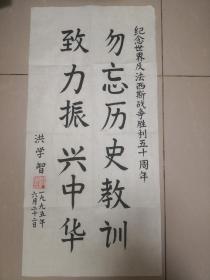 纪念世界反法西斯战争胜利五十周年
勿忘历史教训
致力振兴中华
洪学智
一九九五年
六月二十二日